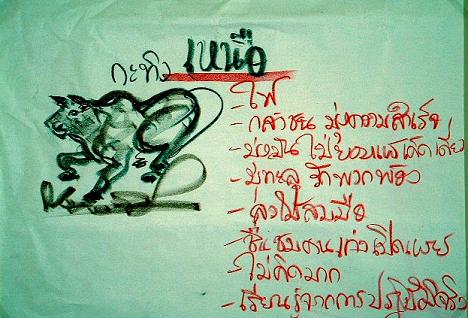 กะทิง เหนือ
- ไฟ
- กล้าชน มุ่งความสำเร็จ
- มุ่งมั่น ไม่ยอมแพ้ เด็ดเดี่ยว
- มุทะลุ รักพวกพ้อง
- ลงมือ
- ชื่นชมคนเก่ง เปิดเผย
- ไม่คิดมาก
- เรียนรู้จากการปฏิบัติจริง